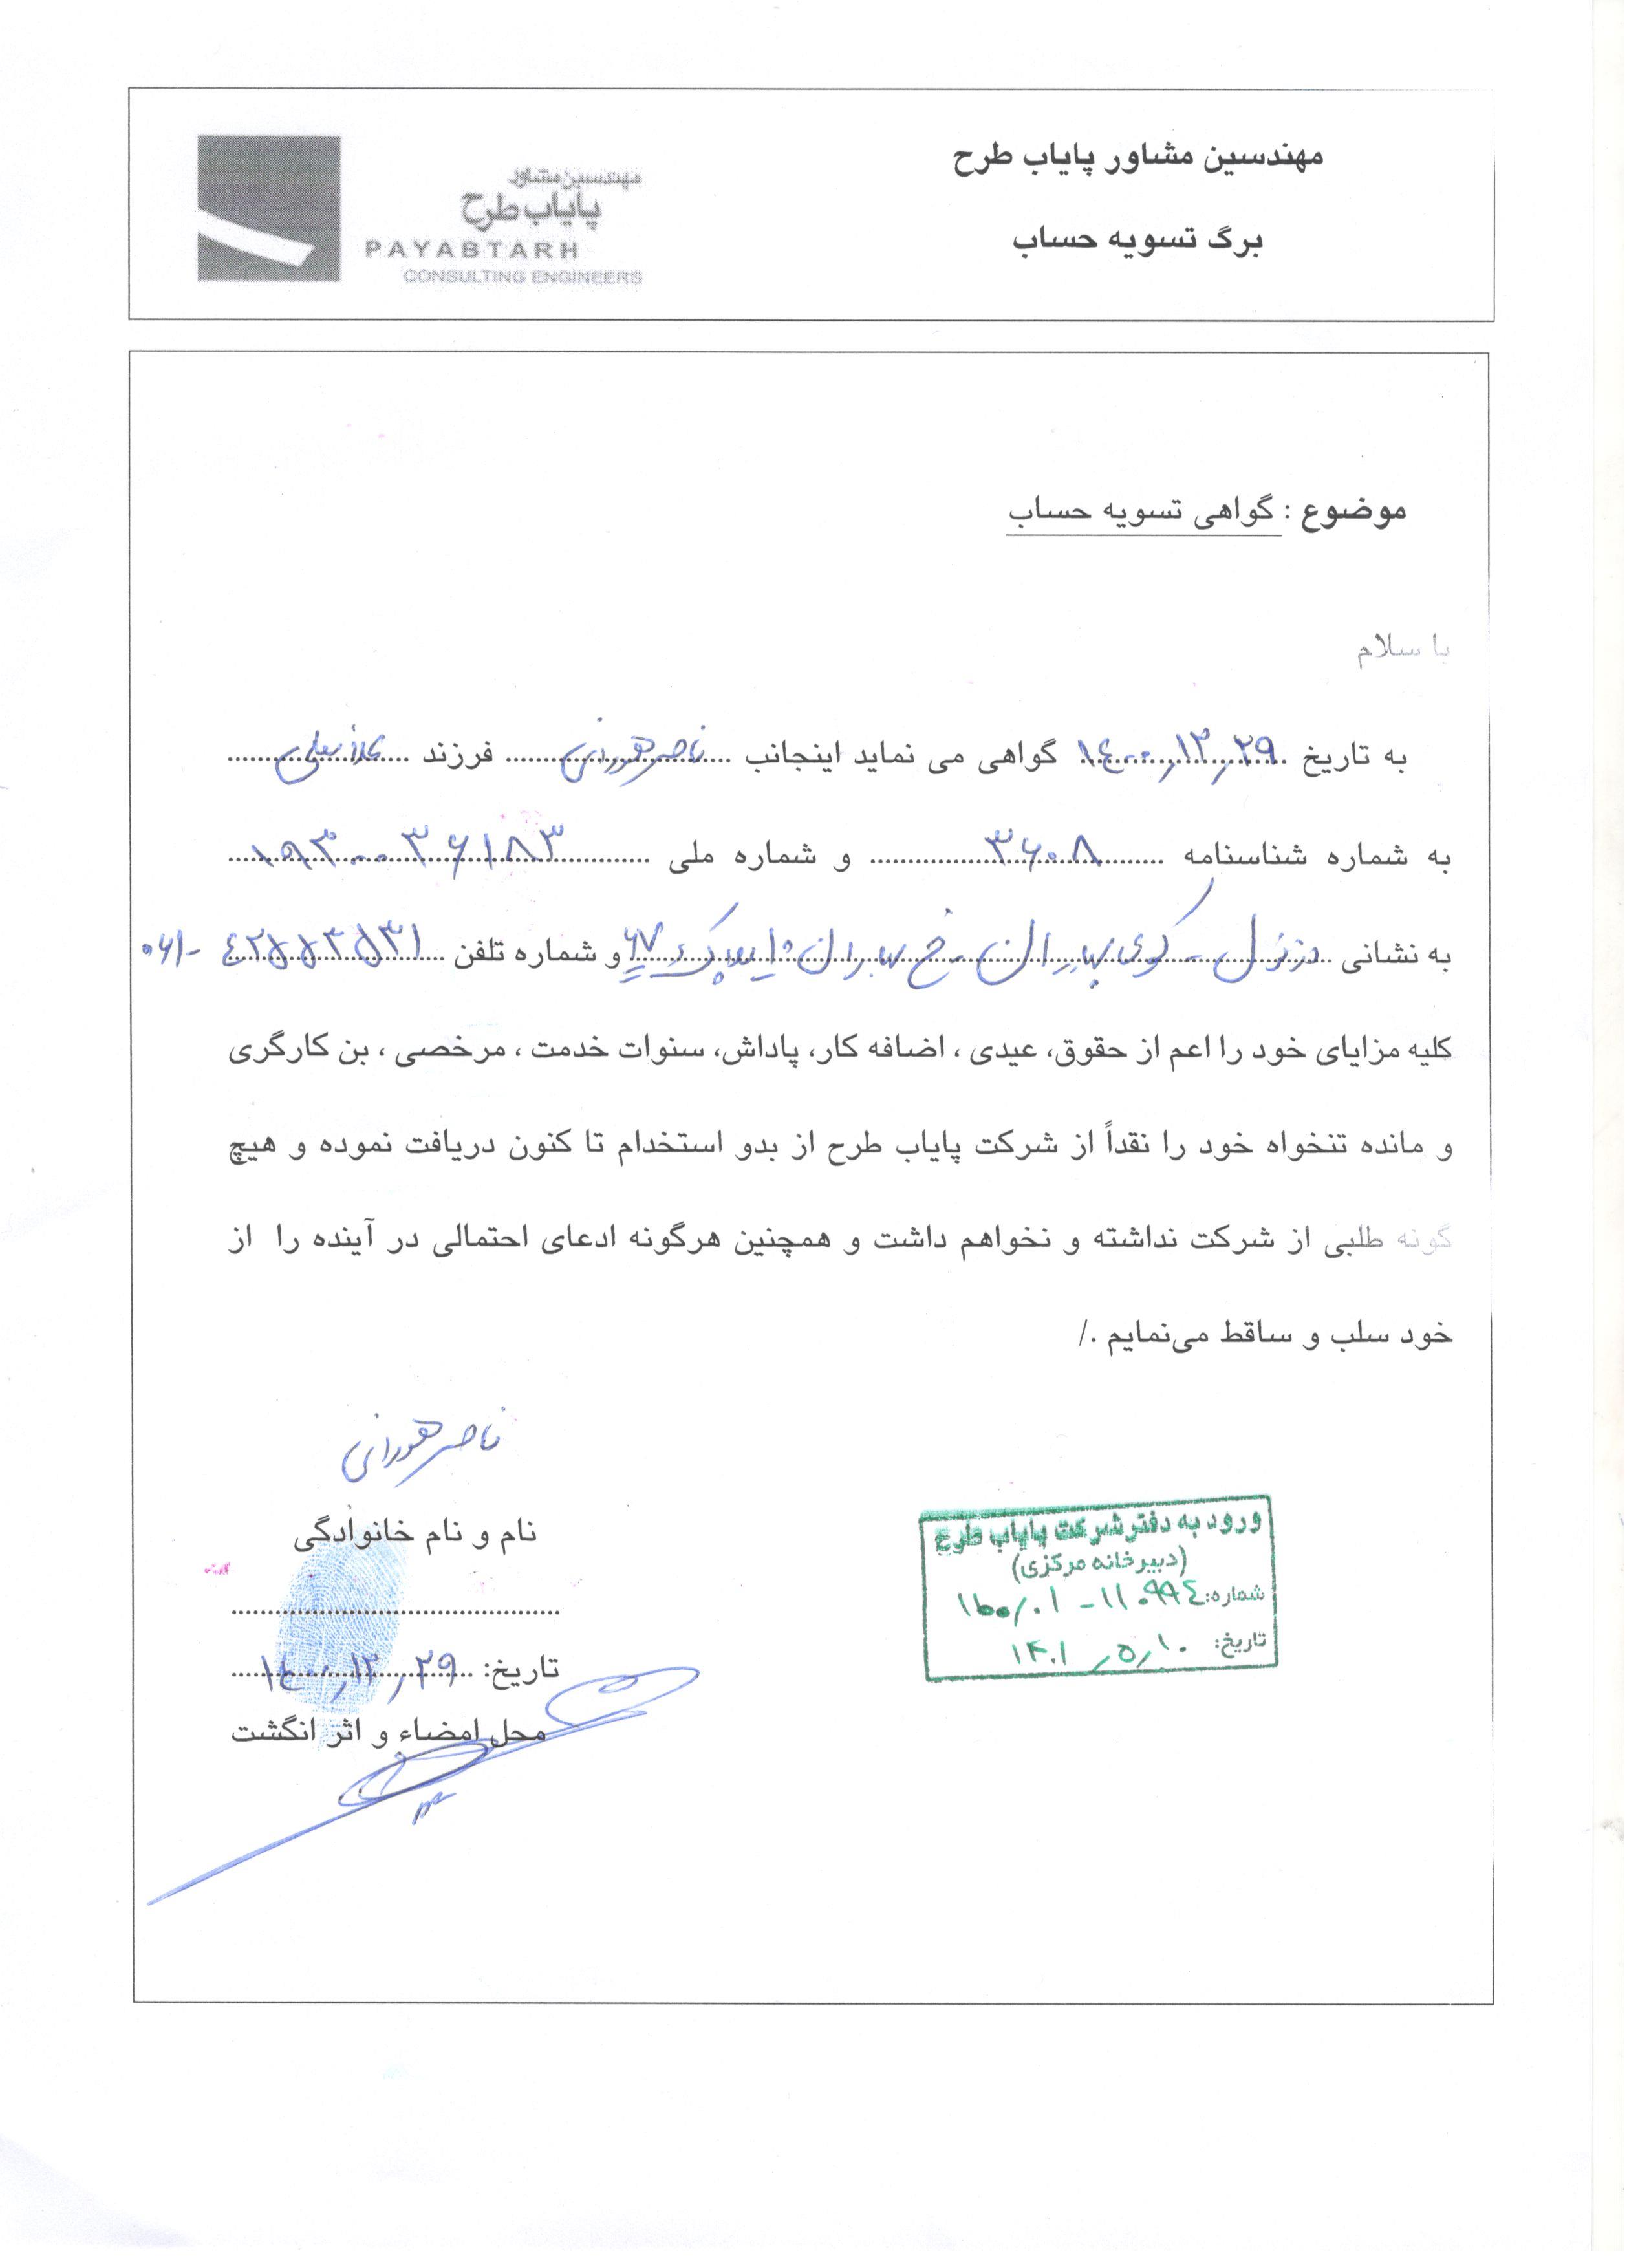 مهندسین مشاور پایاب طرح
برگ تسویه حساب
مهندسین مشاور
پایاب طرح
PAYABTARH
CONSULTING ENGINEERS
موضوع : گواهی تسویه حساب
با سلام
به تاریخ ۱۴۰۰,۱۲,۲۹ گواهی می نماید اینجانب ناصر فرزند
به شماره شناسنامه ۳۶۰۸ و شماره ملی ۱۹۳۰۰۳۶۱۸۳
به نشانی دزفول - کوی - خ پلاک ۶۷ و شماره تلفن ۰۶۱-۴۲۵۵۳۵۳۱
کلیه مزایای خود را اعم از حقوق، عیدی ، اضافه کار، پاداش، سنوات خدمت ، مرخصی ، بن کارگری
و مانده تنخواه خود را نقداً از شرکت پایاب طرح از بدو استخدام تا کنون دریافت نموده و هیچ
گونه طلبی از شرکت نداشته و نخواهم داشت و همچنین هرگونه ادعای احتمالی در آینده را از
خود سلب و ساقط می‌نمایم ./
ناصر
نام و نام خانوادگی
تاریخ: ۱۴۰۰,۱۲,۲۹
محل امضاء و اثر انگشت
ورود به دفتر شرکت پایاب طرح
(دبیرخانه مرکزی)
شماره: ۱۱۰۹۹۴ - ۱۵۰/۰۱
تاریخ: ۱۴۰۱,۵,۱۰